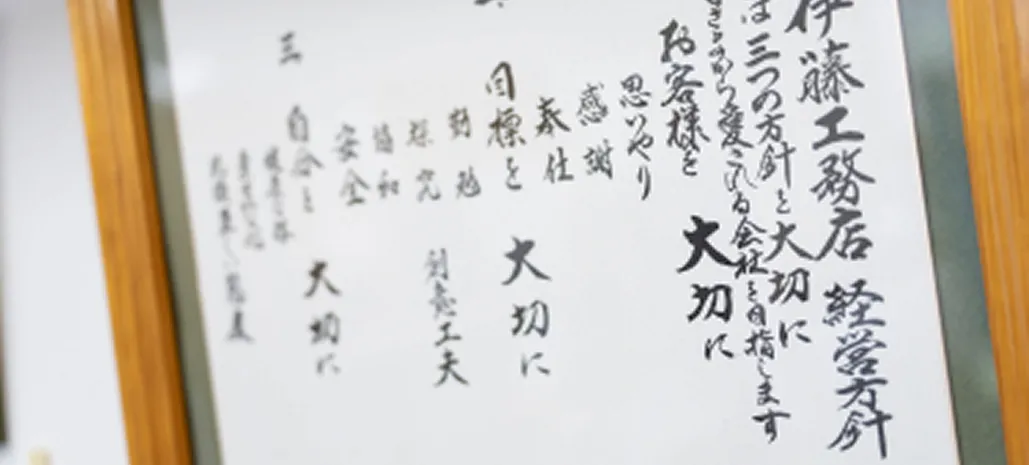 伊藤工務店 経営方針
は三つの方針を大切に
から愛される会社を目指します
お客様を 大切に
思いやり
感謝
奉仕
目標を 大切に
勤勉
探究 創意工夫
協和
安全
三 自分を 大切に